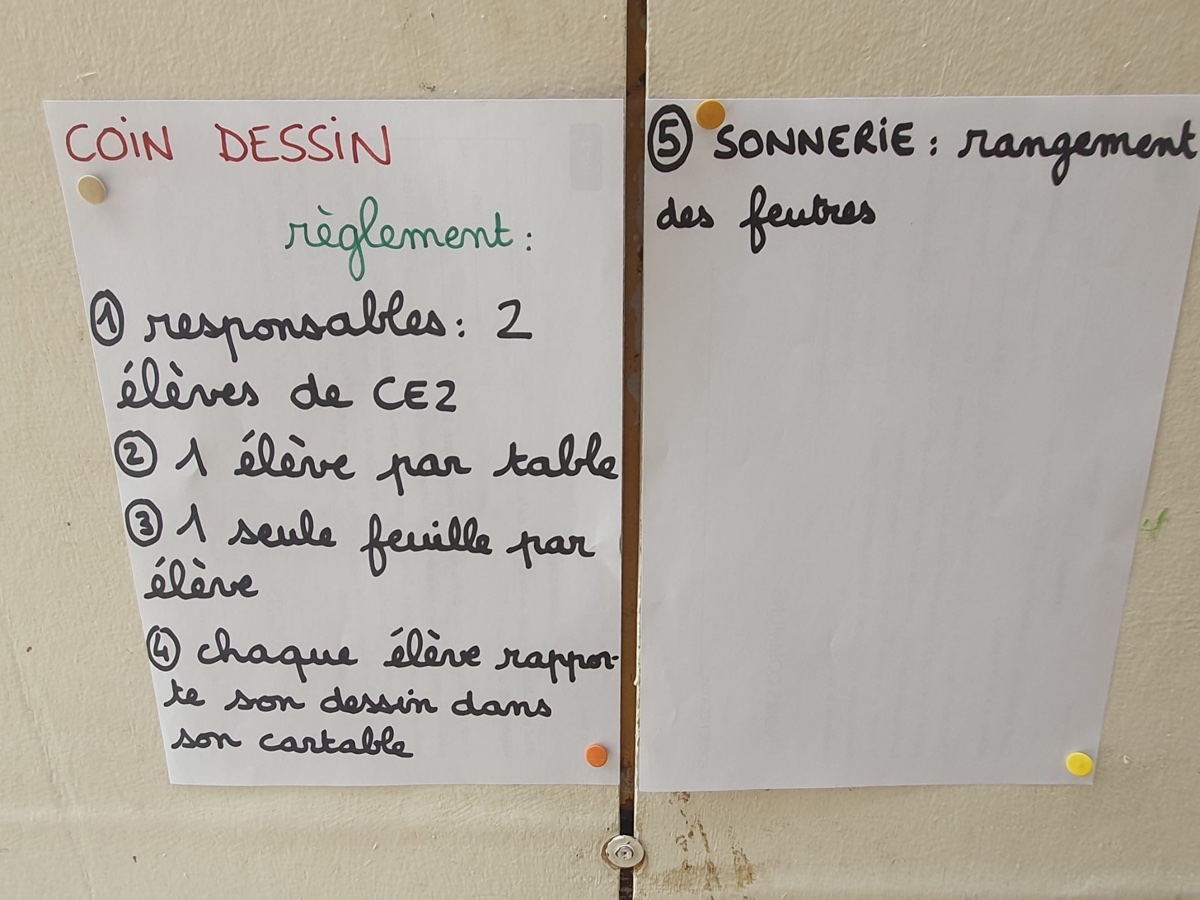 COIN DESSIN
règlement :
① responsables : 2
élèves de CE2
② 1 élève par table
③ 1 seule feuille par
élève
④ chaque élève rappor-
te son dessin dans
son cartable
⑤ SONNERIE : rangement
des feutres